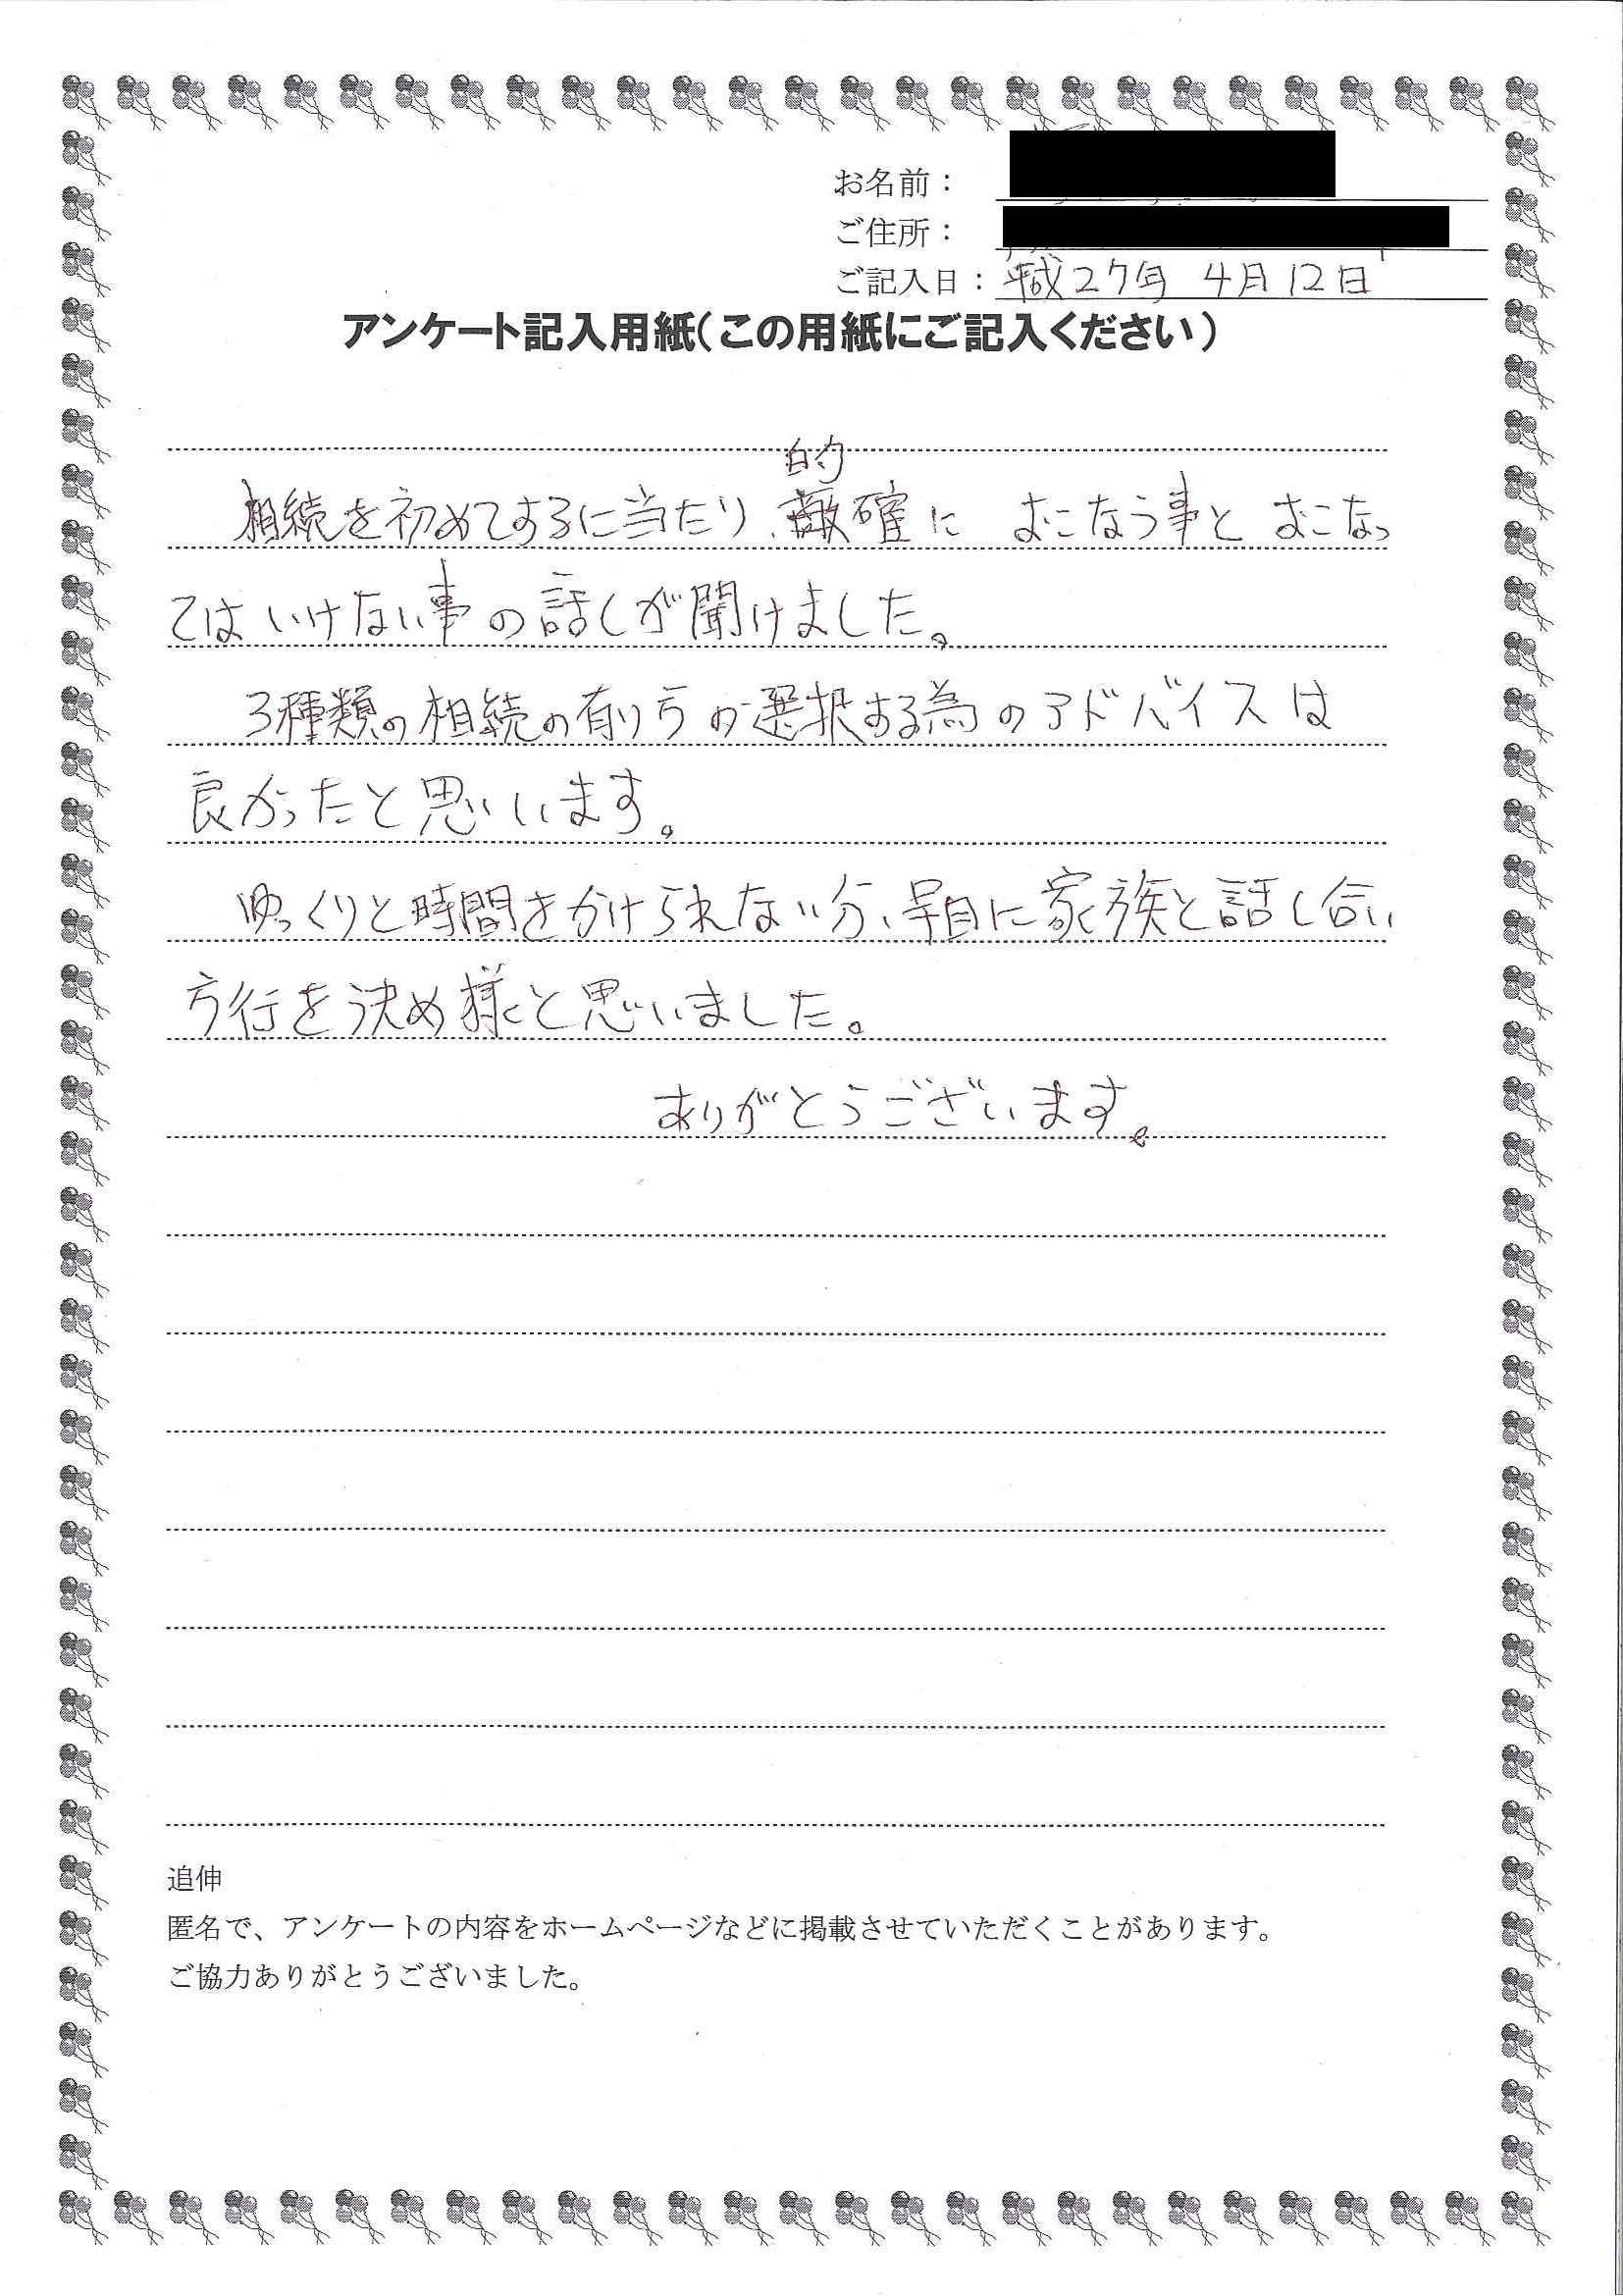 お名前：
ご住所：
ご記入日：平成27年 4月12日
アンケート記入用紙（この用紙にご記入ください）
的
相続を初めてするに当たり、確に おこなう事と おこなっ
てはいけない事の話しが聞けました。
3種類の相続の有り方の選択する為のアドバイスは
良かったと思いいます。
ゆっくりと時間をかけられない分、早目に家族と話し合い
方行を決め様と思いいました。
ありがとうございます。
追伸
匿名で、アンケートの内容をホームページなどに掲載させていただくことがあります。
ご協力ありがとうございました。